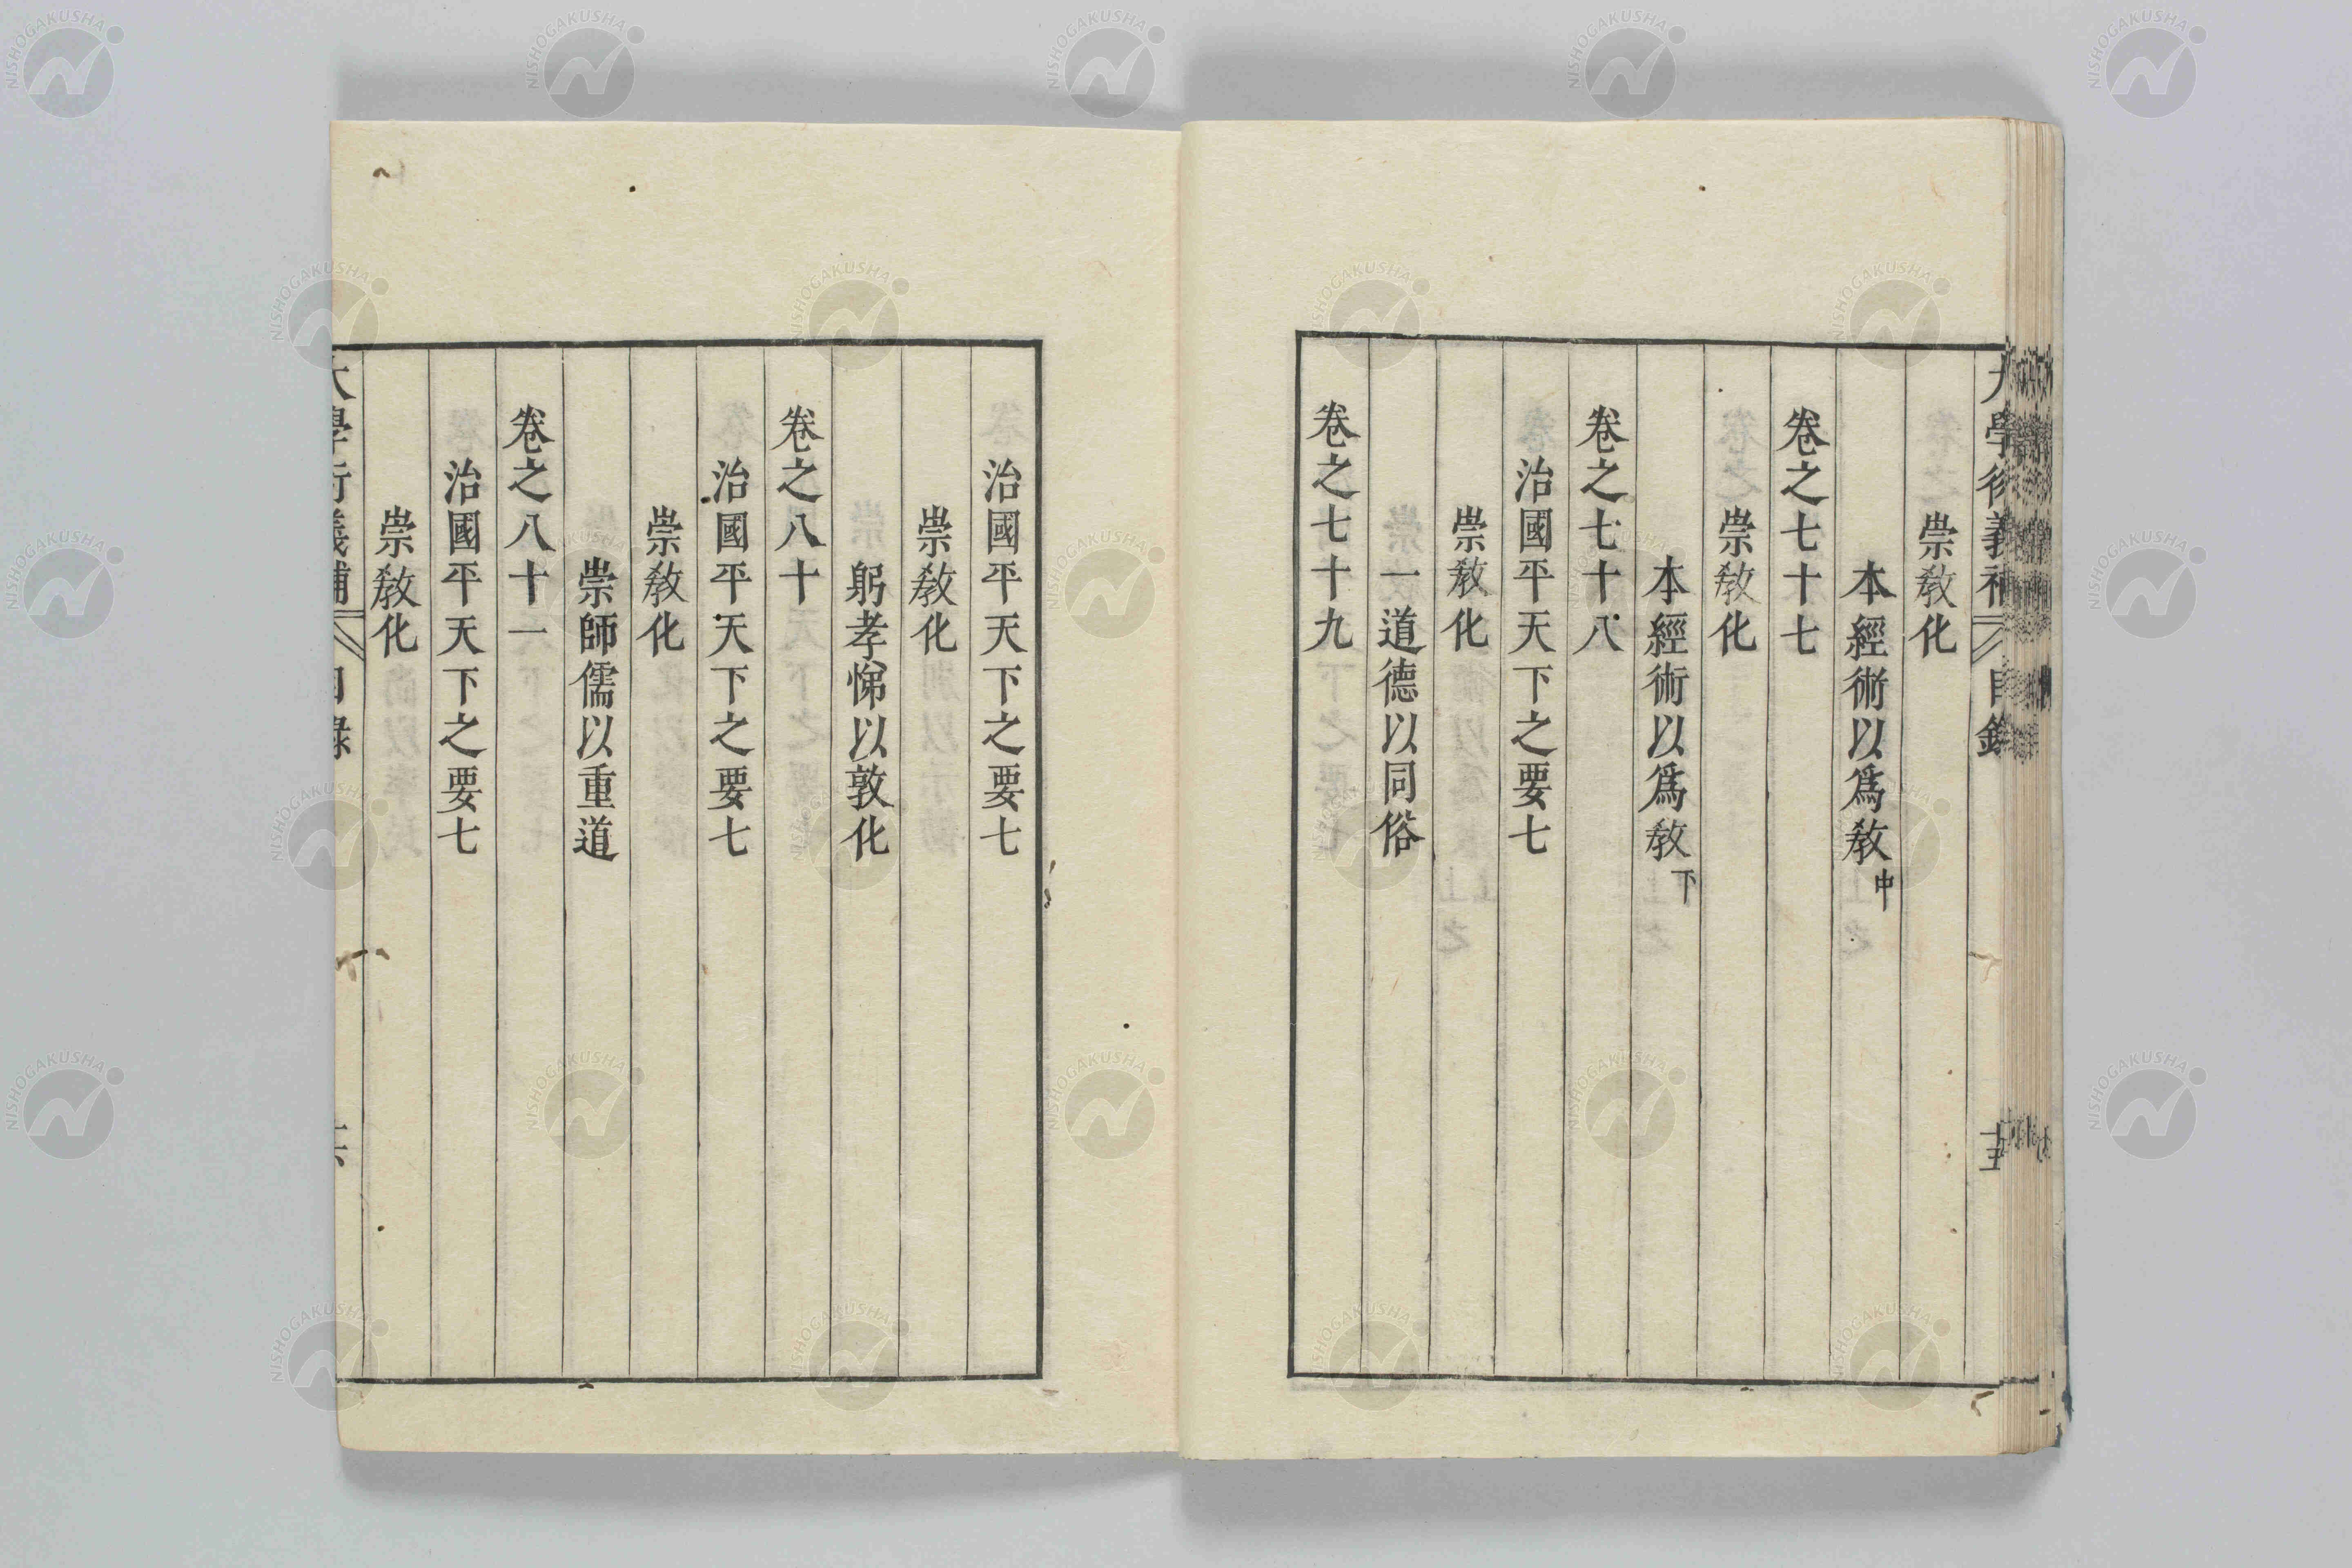 大學衍義補 目錄 十五
崇教化
本經術以爲教中
卷之七十七
崇教化
本經術以爲教下
卷之七十八
治國平天下之要七
崇教化
一道德以同俗
卷之七十九
治國平天下之要七
崇教化
躬孝悌以敦化
卷之八十
治國平天下之要七
崇教化
崇師儒以重道
卷之八十一
治國平天下之要七
崇教化
大學衍義補 目錄
NISHOGAKUSHA